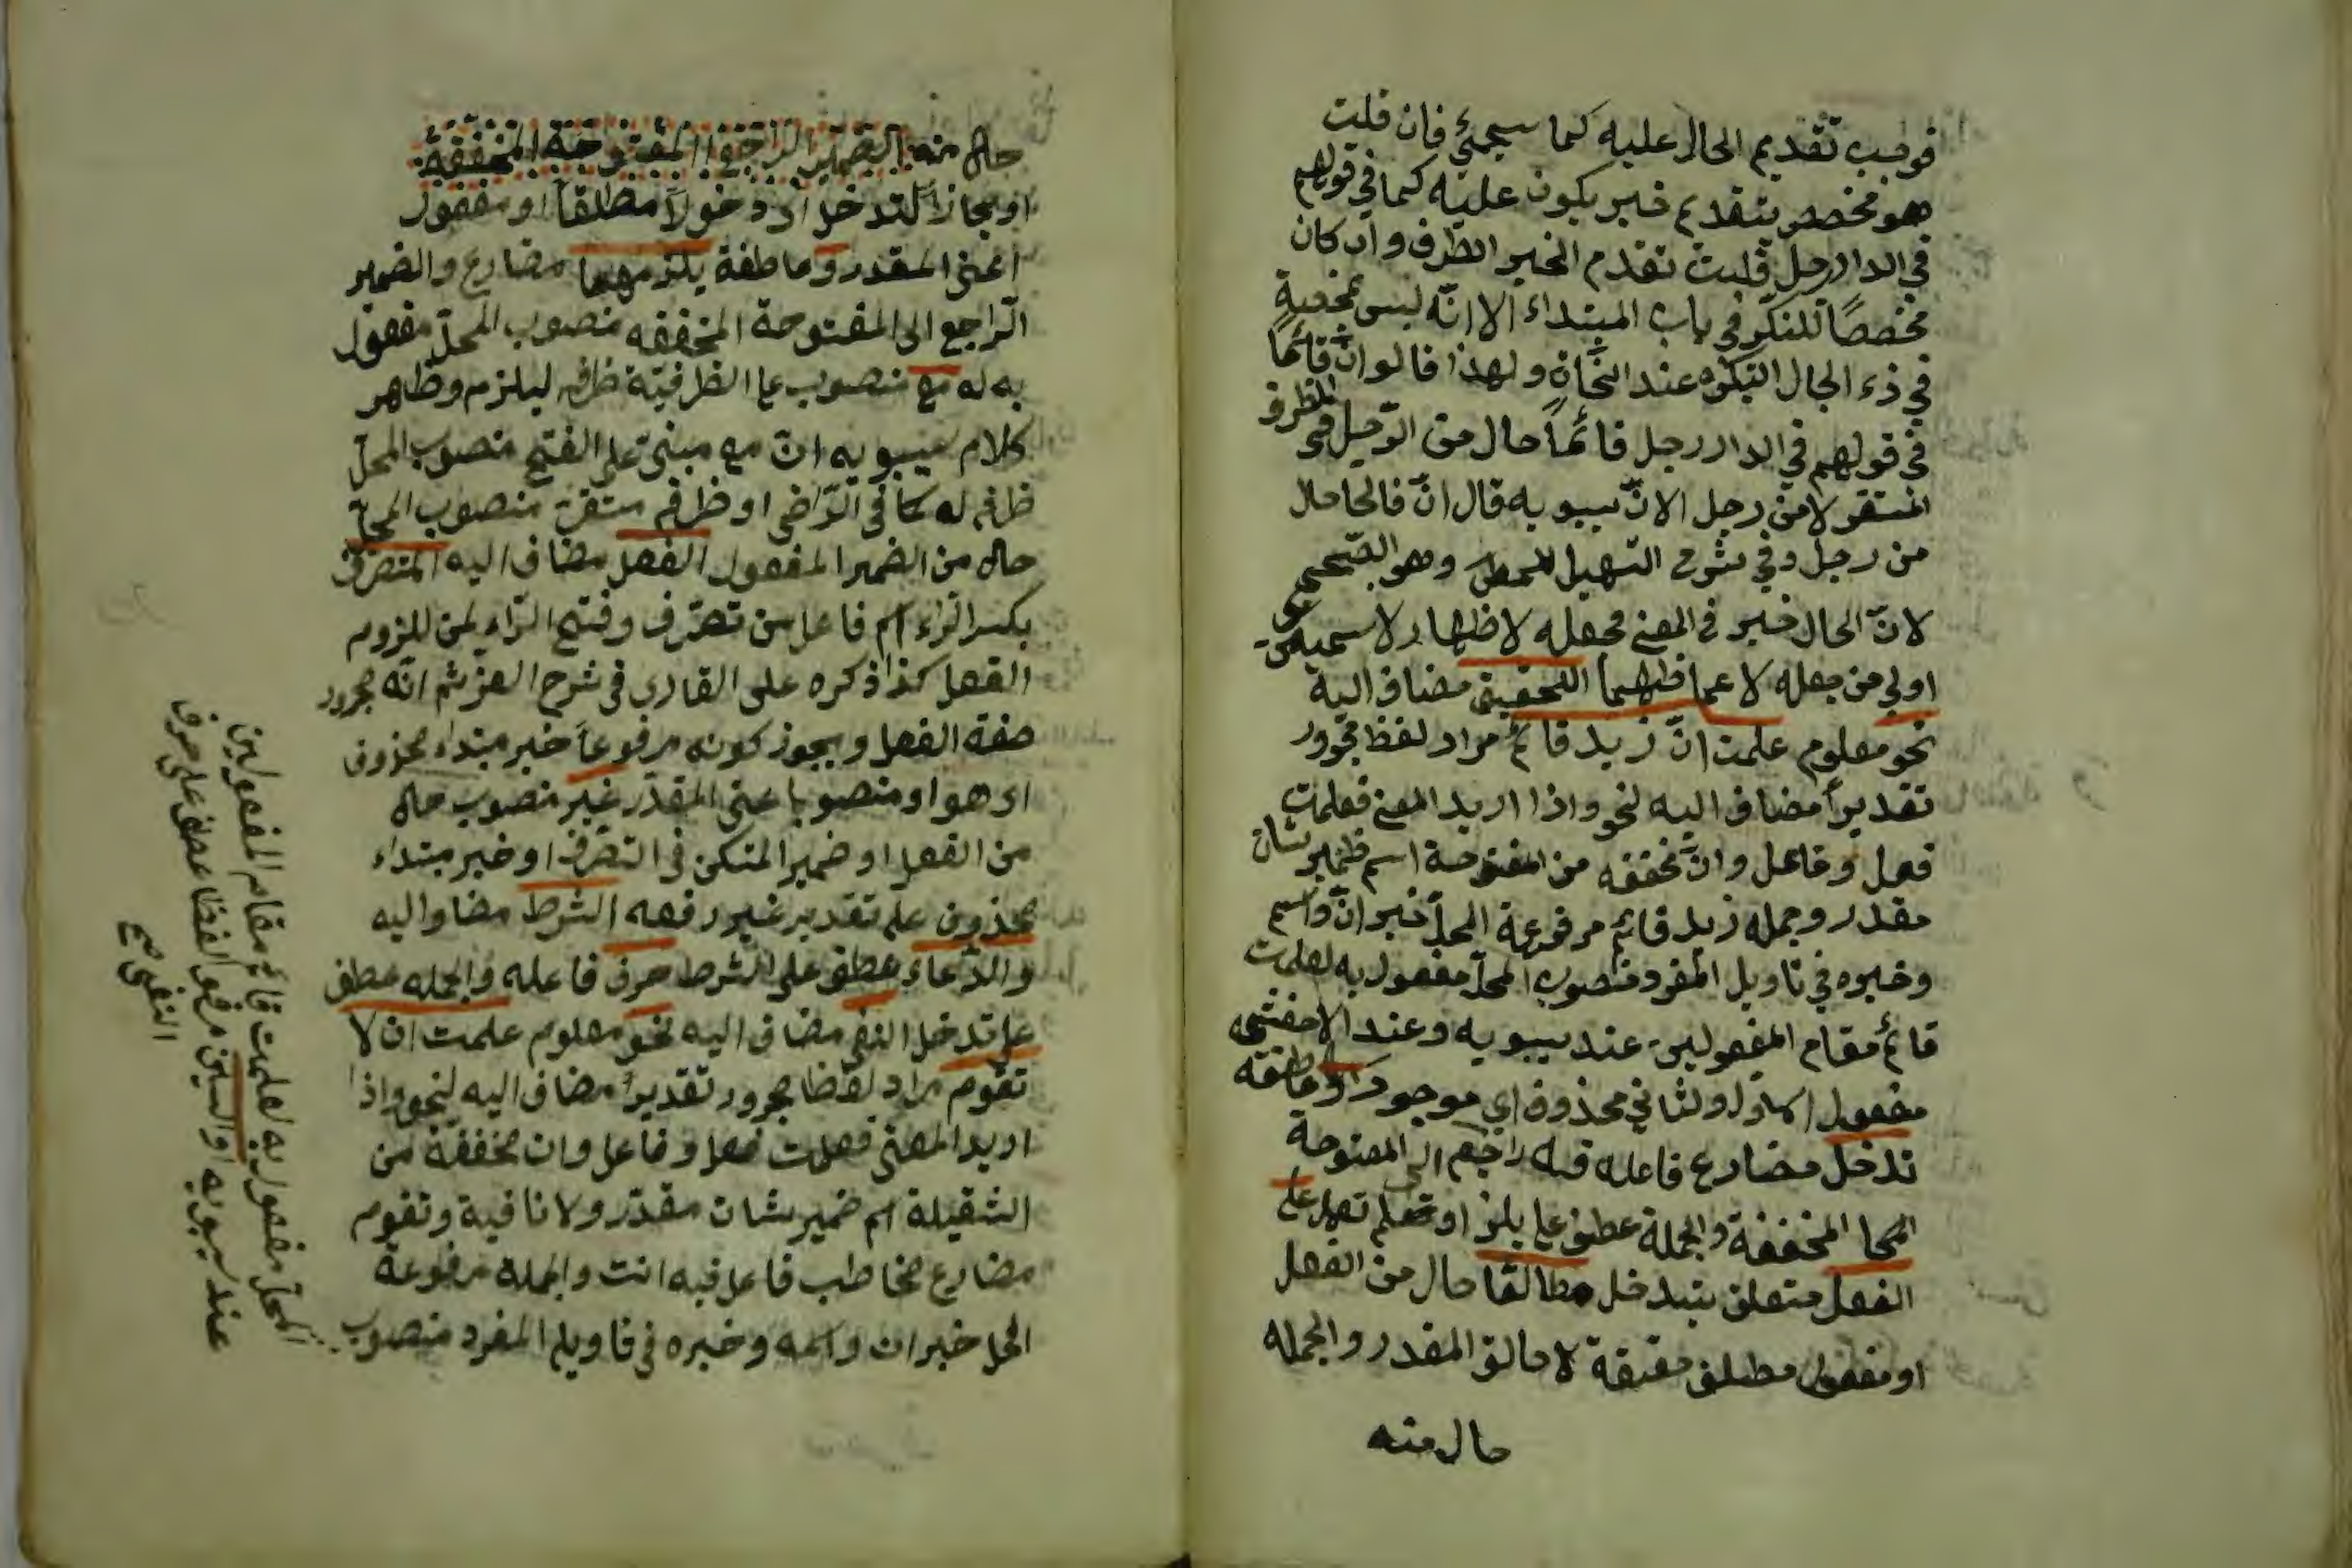 فوجب تقديم الحال عليه كما سيجيئ فان قلت
هو مخصص بتقديم خبر يكون عليه كما في قولهم
في الدار رجل قلت تقدم الخبر الظرف وان كان
مخصصًا للنكر في باب المبتداء الا انّه ليس بمخصص
في ذي الحال النكره عند النحاة ولهذا قالوا انّ قائمًا
في قولهم في الدار رجل قائمًا حال من الرّجل في الظرف
المستقر لا من رجل الا انّ سيبويه قال انّ الحال
من رجل وفي شرح التسهيل وهو الصّحيح
لانّ الحال خبر في المعنى فجعله لاظهار لاسمين
اولي من جعله لا عما ظهما التحقيق مضاف اليه
نحو معلوم علمت انّ زيد قائم مراد لفظ مجرور
تقديراً مضاف اليه لنحو واذا اريد المعنى فعلمت
فعل وفاعل وانّ مخففه من المفتوحة اسم ضمير شان
مقدر وجمله زيد قائم مرفوعة المحلّ خبر انّ واسم
وخبره في تاويل المفرد منصوب المحلّ مفعول به لعلمت
قائم مقام المفعولين عند سيبويه وعند الاخفش
مفعول الاول والثاني محذوف اي موجود او عاطفه
تدخل مضارع فاعله فيه راجع الى المفتوحة
المخففة والجملة عطف على يلزم على
الفعل متعلق بتدخل مطلقا حال من الفعل
او مفعول مطلق حقيقة لا حالق المقدر والجمله
حال منه
حال منه الضمير الراجع المفتوحة المخففة
او مجازاً لتدخل اي دخولاً مطلقاً او مفعول
اعنى المقدر وعاطفة يلزمهما مضارع والضمير
الرّاجع الى المفتوحة المخففه منصوب المحلّ مفعول
به له مع منصوب على الظرفيّة ظرف ليلزم وظاهر
كلام سيبويه انّ مع مبني على الفتح منصوب المحلّ
ظرف له كما في الرّاضي او ظرف مستقرّ منصوب المحلّ
حال من الضمير المفعول الفعل مضاف اليه المتصرّف
بكسر الرّاء اسم فاعل من تصرّف وفتح الرّاء لمن للزوم
الفعل كذا ذكره على القارى في شرح العز ثم انّه مجرور
صفة الفعل ويجوز كونه مرفوعاً خبر مبتداء محذوف
اى هو او منصوبا عنى المقدّر غير منصوب حال
من الفعل او ضمير المتكن في التصرّف او خبر مبتداء
محذوف على تقدير غير رفعه الشرط مضاف اليه
والدّعاء عطف على الشرط حرف فاعله والجمله عطف
على تدخل النفى مضاف اليه نحو معلوم علمت ان لا
تقوم مراد لفظا مجرور تقديراً مضاف اليه لنحو واذا
اريد المعنى فعلمت فعل وفاعل وان مخففة من
الثقيلة اسم ضمير شان مقدّر ولا نافية وتقوم
مضارع مخاطب فاعل فيه انت والجملة مرفوعة
المحل خبر ان واسمه وخبره في تاويل المفرد منصوب
المحلّ مفعول به لعلمت قائم مقام المفعولين
عند سيبويه والسين مرفوع لفظا عطف على حرف
النفى صح